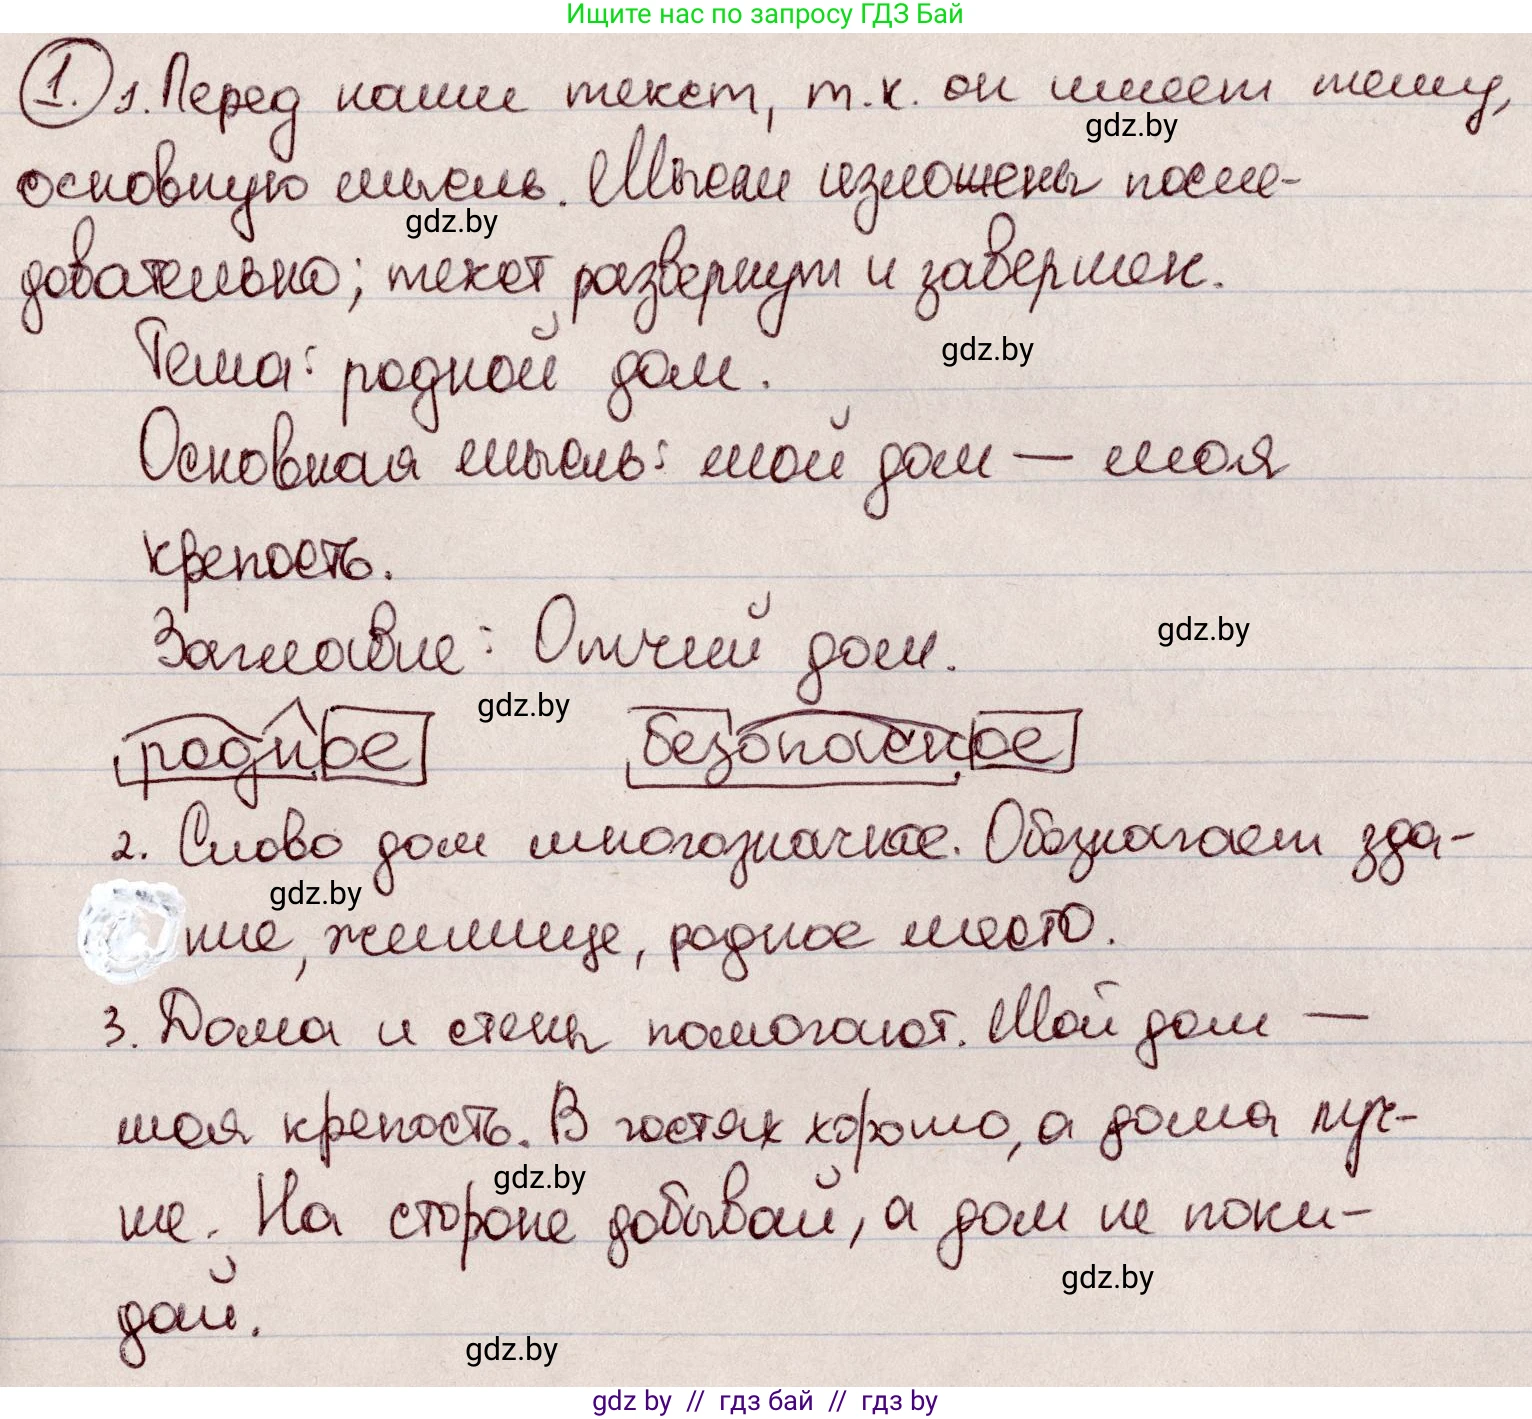 Ищите нас по запросу ГДЗ Бай
1. 1. Перед нами текст, т.к. он имеет тему,
gdz.by
основную мысль. Мысли изложены после-
gdz.by
довательно; текст развернут и завершен.
Тема: родной дом.
gdz.by
Основная мысль: мой дом — моя
крепость.
Заглавие: Отчий дом.
gdz.by
gdz.by
родное безопасное
2. Слово дом многозначное. Обозначает зда-
gdz.by
ние, жилище, родное место.
3. Дома и стены помогают. Мой дом —
моя крепость. В гостях хорошо, а дома луч-
gdz.by
ше. На стороне добывай, а дом не поки-
gdz.by
дай.
gdz.by
gdz by // гдз бай // гдз by